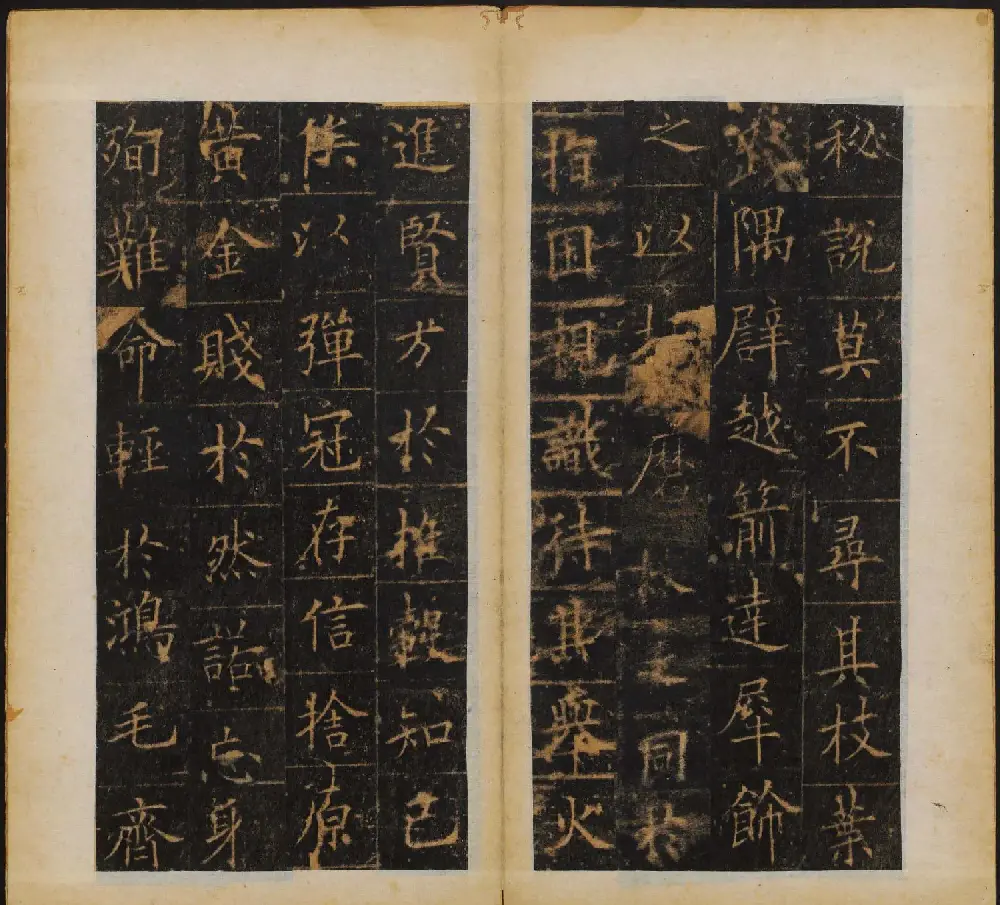 秘說莫不尋其枝葉
隅譬越箭達犀飾
之以磨同於
指囷親識待其舉火
進賢方於推轂知己
俟以彈冠存信捨原
黃金賤於然諾忘身
殉難命輕於鴻毛齊